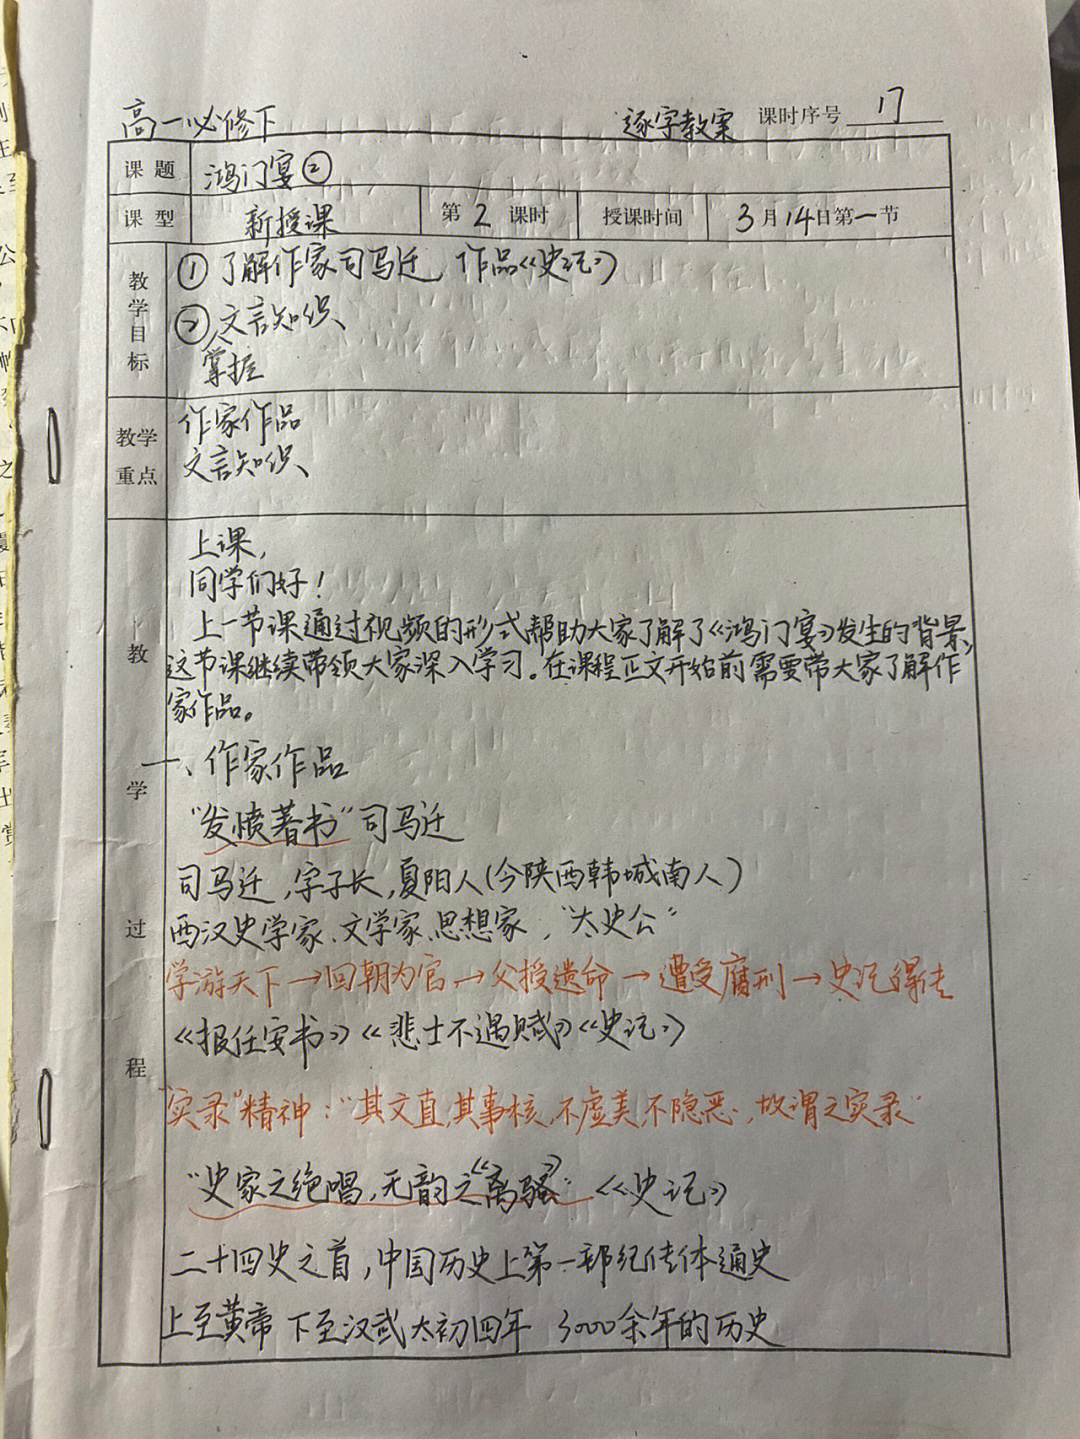 高一必修下 逐字教案 课时序号 17
课题 鸿门宴②
课型 新授课 第2课时 授课时间 3月14日第一节
教学目标
①了解作家司马迁 作品《史记》
②文言知识
掌握
教学重点
作家作品
文言知识
教学过程
上课,
同学们好!
上一节课通过视频的形式帮助大家了解了《鸿门宴》发生的背景,
这节课继续带领大家深入学习。在课程正文开始前需要带大家了解作
家作品。
一、作家作品
“发愤著书”司马迁
司马迁,字子长,夏阳人(今陕西韩城南人)
西汉史学家、文学家、思想家,“太史公”
学游天下→回朝为官→父授遗命→遭受腐刑→史记得传
《报任安书》《悲士不遇赋》《史记》
“实录”精神:“其文直,其事核,不虚美,不隐恶,故谓之实录”
“史家之绝唱,无韵之《离骚》”《史记》
二十四史之首,中国历史上第一部纪传体通史
上至黄帝 下至汉武太初四年 3000余年的历史